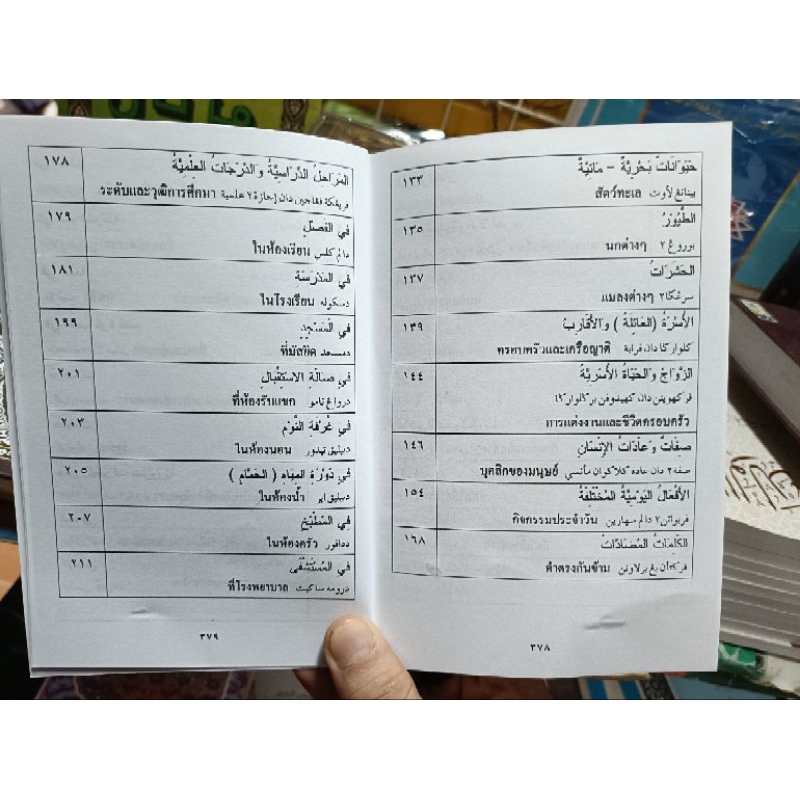 حَيَوَانَاتٌ بَحْرِيَّةٌ - مَائِيَّةٌ ١٣٣
بيناتڠ لاوت สัตว์ทะเล
الطُّيُوْرُ ١٣٥
بوروڠ ٢ นกต่างๆ
الحَشَرَاتُ ١٣٧
سرڠݢا٢ แมลงต่างๆ
الأُسْرَةُ (العَائِلَةُ) وَالأَقَارِبُ ١٣٩
كلوارݢا دان قرابة ครอบครัวและเครือญาติ
الزَّوَاجُ وَالحَيَاةُ الأُسْرِيَّةُ ١٤٤
ڤركهوينن دان كهيدوڤن بركلوارݢا
การแต่งงานและชีวิตครอบครัว
صِفَاتُ وَعَادَاتُ الإِنْسَانِ ١٤٦
صفة٢ دان عادة كلاكوان مأنسي บุคลิกของมนุษย์
الأَفْعَالُ اليَوْمِيَّةُ المُخْتَلِفَةُ ١٥٤
ڤربواتن٢ دالم سهارين กิจกรรมประจำวัน
الكَلِمَاتُ المُضَادَّاتُ ١٦٨
ڤركتاءن يڠ برلاونن คำตรงกันข้าม
٣٧٨
المَرَاحِلُ الدِّرَاسِيَّةُ وَالدَّرَجَاتُ العِلْمِيَّةُ ١٧٨
دان إجازة٢ علمية ระดับและวุฒิการศึกษา
فِي الفَصْلِ ١٧٩
دالم كلس ในห้องเรียน
فِي المَدْرَسَةِ ١٨١
دسكوله ในโรงเรียน
فِي المَسْجِدِ ١٩٩
دمسجد ที่มัสยิด
فِي صَالَةِ الاسْتِقْبَالِ ٢٠١
درواڠ تامو ที่ห้องรับแขก
فِي غُرْفَةِ النَّوْمِ ٢٠٣
دبيليق تيدور ในห้องนอน
فِي دَوْرَةِ المِيَاهِ (الحَمَّامِ) ٢٠٥
دبيليق اير ในห้องน้ำ
فِي المَطْبَخِ ٢٠٧
ددافور ในห้องครัว
فِي المُسْتَشْفَى ٢١١
درومه ساكيت ที่โรงพยาบาล
٣٧٩